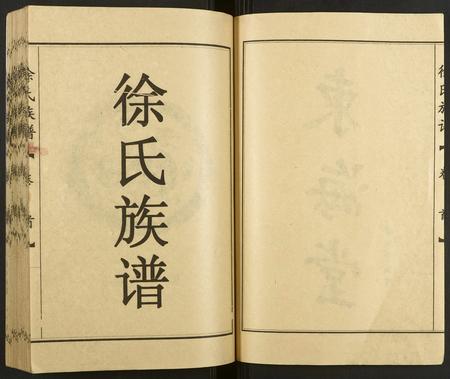 徐氏族谱
徐氏族谱【卷首】
東海堂
徐氏族谱【卷首】